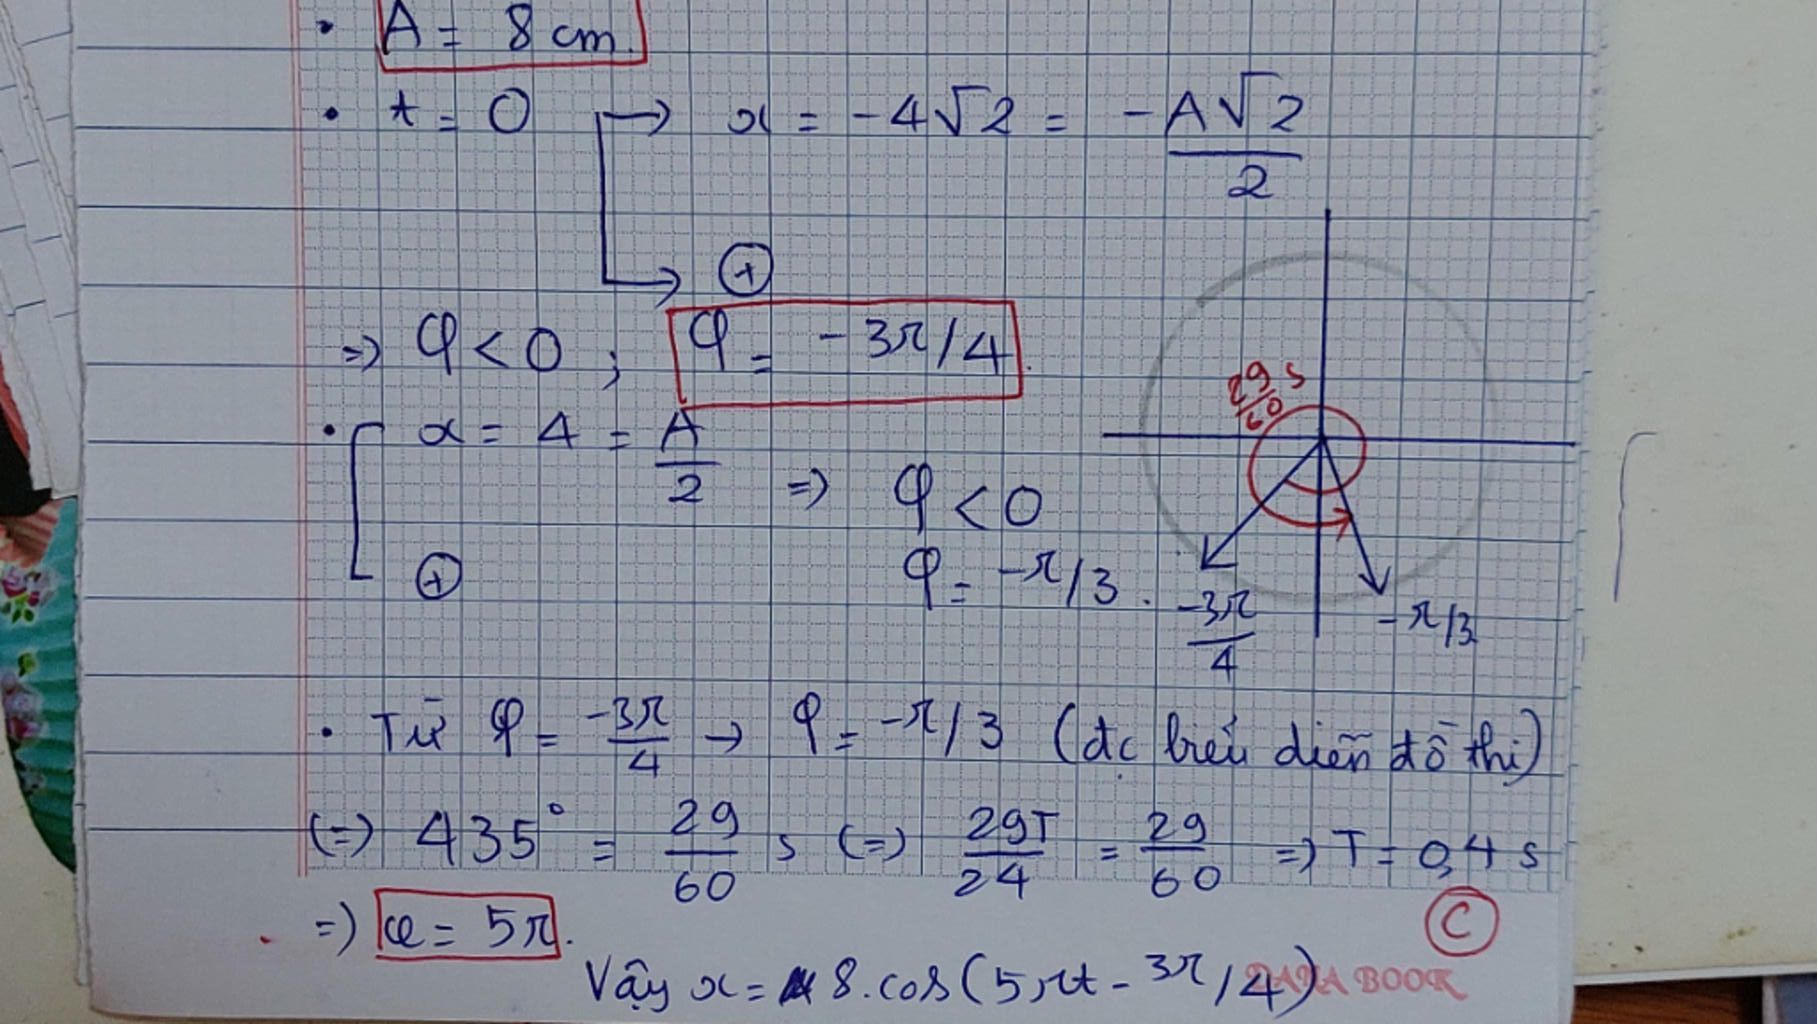 • A = 8 cm.
• t = 0 → x = -4√2 = -A√2/2
→ ⊕
=> φ < 0 ; φ = -3π/4.
• x = 4 = A/2 => φ < 0
⊕ φ = -π/3.
29/60 s
-3π/4
-π/3
• Từ φ = -3π/4 → φ = -π/3 (đc biểu diễn đồ thị)
(=) 435° = 29/60 s (=) 29T/24 = 29/60 => T = 0,4 s
=> ω = 5π.
C
Vậy x = 8.cos(5πt - 3π/4)
BOOK